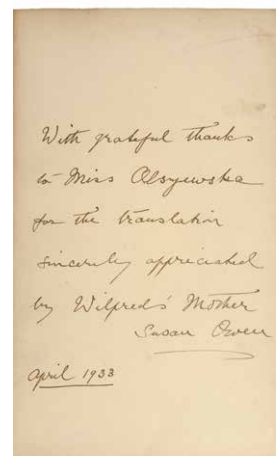 With grateful thanks
to Miss Olszewska
for the translation
sincerely appreciated
by Wilfred's Mother
Susan Owen
April 1933